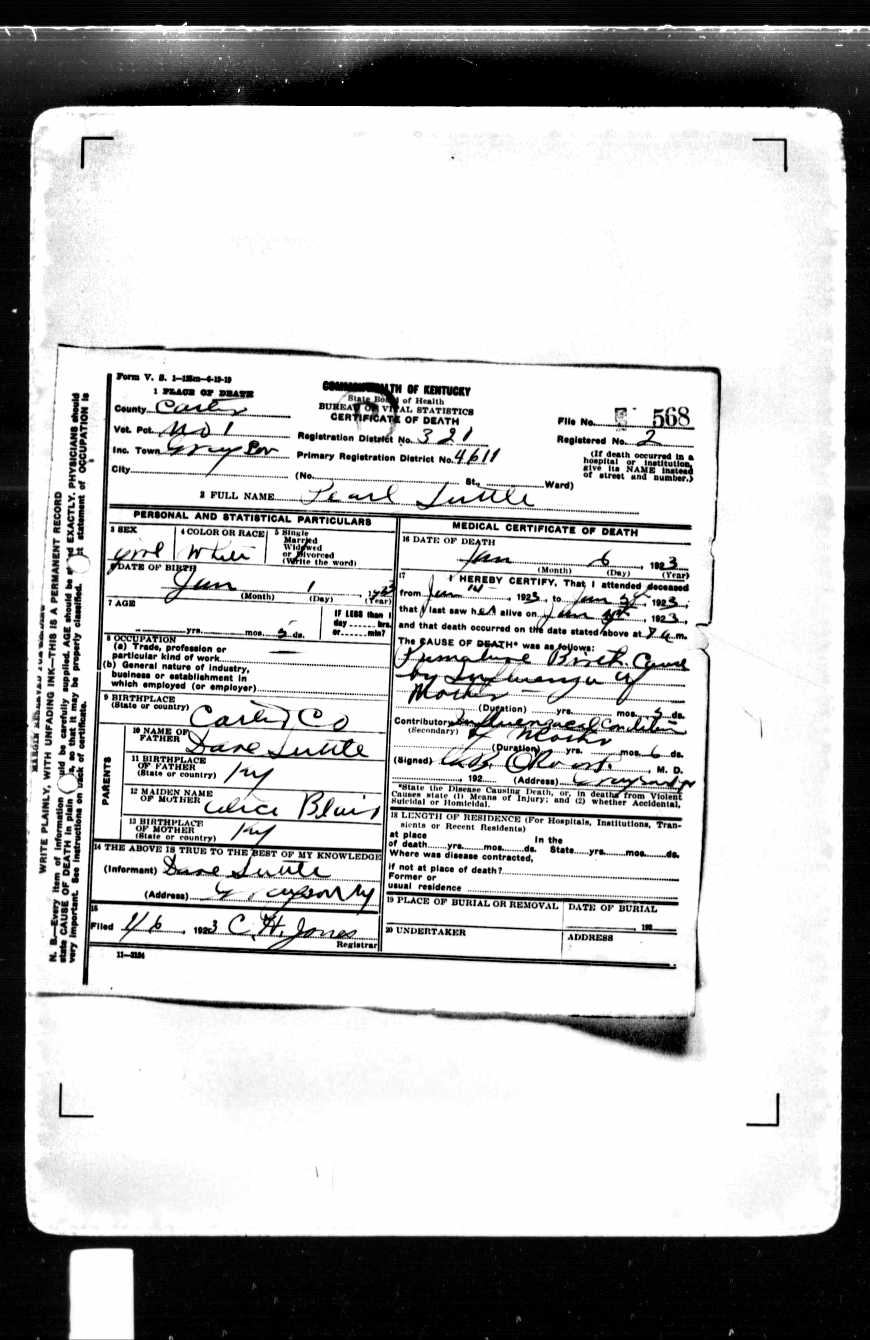 Form V. S. 1—125m—6-19-19
1 PLACE OF DEATH
County Carter
Vot. Pct. No 1
Inc. Town Grayson
City
COMMONWEALTH OF KENTUCKY
State Board of Health
BUREAU OF VITAL STATISTICS
CERTIFICATE OF DEATH
Registration District No. 321
Primary Registration District No. 4611
(No. St., Ward)
File No. 568
Registered No. 2
(If death occurred in a
hospital or institution,
give its NAME instead
of street and number.)
2 FULL NAME Pearl
PERSONAL AND STATISTICAL PARTICULARS
3 SEX
girl
4 COLOR OR RACE
White
5 Single
Married
Widowed
or Divorced
(Write the word)
6 DATE OF BIRTH
Jan 1 1923
(Month) (Day) (Year)
7 AGE
yrs. mos. 5 ds.
IF LESS than 1
day hrs.
or min?
8 OCCUPATION
(a) Trade, profession or
particular kind of work
(b) General nature of industry,
business or establishment in
which employed (or employer)
9 BIRTHPLACE
(State or country) Carter Co
PARENTS
10 NAME OF
FATHER Dave
11 BIRTHPLACE
OF FATHER
(State or country) Ky
12 MAIDEN NAME
OF MOTHER Alice Blair
13 BIRTHPLACE
OF MOTHER
(State or country) Ky
14 THE ABOVE IS TRUE TO THE BEST OF MY KNOWLEDGE
(Informant) Dave
(Address) Grayson Ky
15
Filed 1/6, 1923 C. H. Jones
Registrar
11—3184
MEDICAL CERTIFICATE OF DEATH
16 DATE OF DEATH
Jan 6, 1923
(Month) (Day) (Year)
17 I HEREBY CERTIFY, That I attended deceased
from Jan 1st, 1923, to Jan, 1923,
that I last saw her alive on Jan, 1923,
and that death occurred on the date stated above at 8 a.m.
The CAUSE OF DEATH* was as follows:
Premature Birth Cause
by Influenza of
Mother
(Duration) yrs. mos. 5 ds.
Contributory Influenzaeal Condition
(Secondary) of Mother
(Duration) yrs. mos. 6 ds.
(Signed), M. D.
, 192 (Address) Grayson Ky
*State the Disease Causing Death, or, in deaths from Violent
Causes state (1) Means of Injury; and (2) whether Accidental,
Suicidal or Homicidal.
18 LENGTH OF RESIDENCE (For Hospitals, Institutions, Tran-
sients or Recent Residents)
at place In the
of death yrs. mos. ds. State yrs. mos. ds.
Where was disease contracted,
if not at place of death?
Former or
usual residence
19 PLACE OF BURIAL OR REMOVAL
DATE OF BURIAL
, 192
20 UNDERTAKER
ADDRESS
MARGIN RESERVED FOR
WRITE PLAINLY, WITH UNFADING INK—THIS IS A PERMANENT RECORD
N. B.—Every item of information should be carefully supplied. AGE should be stated EXACTLY. PHYSICIANS should
state CAUSE OF DEATH in plain so that it may be properly classified. statement of OCCUPATION is
very important. See instructions on back of certificate.